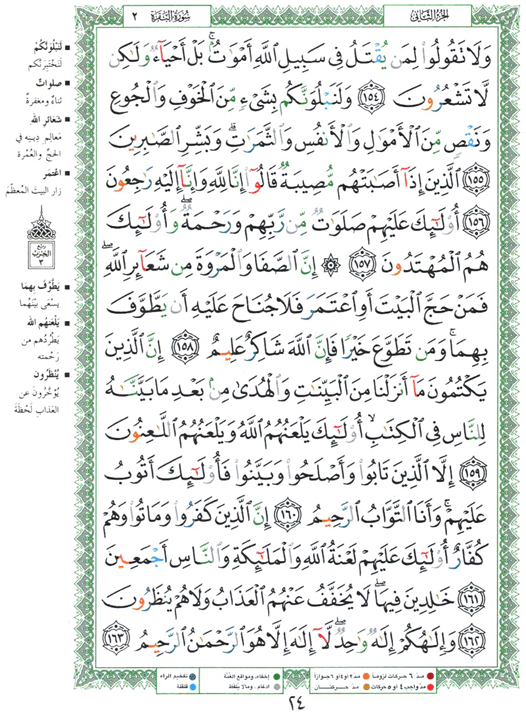 الجزء الثاني
سورة البقرة ٢
وَلَا تَقُولُوا۟ لِمَن يُقْتَلُ فِى سَبِيلِ ٱللَّهِ أَمْوَٰتٌۢ ۚ بَلْ أَحْيَآءٌ وَلَٰكِن
لَّا تَشْعُرُونَ ١٥٤ وَلَنَبْلُوَنَّكُم بِشَىْءٍ مِّنَ ٱلْخَوْفِ وَٱلْجُوعِ
وَنَقْصٍ مِّنَ ٱلْأَمْوَٰلِ وَٱلْأَنفُسِ وَٱلثَّمَرَٰتِ ۗ وَبَشِّرِ ٱلصَّٰبِرِينَ
١٥٥ ٱلَّذِينَ إِذَآ أَصَٰبَتْهُم مُّصِيبَةٌ قَالُوٓا۟ إِنَّا لِلَّهِ وَإِنَّآ إِلَيْهِ رَٰجِعُونَ
١٥٦ أُو۟لَٰٓئِكَ عَلَيْهِمْ صَلَوَٰتٌ مِّن رَّبِّهِمْ وَرَحْمَةٌ ۖ وَأُو۟لَٰٓئِكَ
هُمُ ٱلْمُهْتَدُونَ ١٥٧ ۞ إِنَّ ٱلصَّفَا وَٱلْمَرْوَةَ مِن شَعَآئِرِ ٱللَّهِ ۖ
فَمَنْ حَجَّ ٱلْبَيْتَ أَوِ ٱعْتَمَرَ فَلَا جُنَاحَ عَلَيْهِ أَن يَطَّوَّفَ
بِهِمَا ۚ وَمَن تَطَوَّعَ خَيْرًا فَإِنَّ ٱللَّهَ شَاكِرٌ عَلِيمٌ ١٥٨ إِنَّ ٱلَّذِينَ
يَكْتُمُونَ مَآ أَنزَلْنَا مِنَ ٱلْبَيِّنَٰتِ وَٱلْهُدَىٰ مِنۢ بَعْدِ مَا بَيَّنَّٰهُ
لِلنَّاسِ فِى ٱلْكِتَٰبِ ۙ أُو۟لَٰٓئِكَ يَلْعَنُهُمُ ٱللَّهُ وَيَلْعَنُهُمُ ٱللَّٰعِنُونَ
١٥٩ إِلَّا ٱلَّذِينَ تَابُوا۟ وَأَصْلَحُوا۟ وَبَيَّنُوا۟ فَأُو۟لَٰٓئِكَ أَتُوبُ
عَلَيْهِمْ ۚ وَأَنَا ٱلتَّوَّابُ ٱلرَّحِيمُ ١٦٠ إِنَّ ٱلَّذِينَ كَفَرُوا۟ وَمَاتُوا۟ وَهُمْ
كُفَّارٌ أُو۟لَٰٓئِكَ عَلَيْهِمْ لَعْنَةُ ٱللَّهِ وَٱلْمَلَٰٓئِكَةِ وَٱلنَّاسِ أَجْمَعِينَ
١٦١ خَٰلِدِينَ فِيهَا ۖ لَا يُخَفَّفُ عَنْهُمُ ٱلْعَذَابُ وَلَا هُمْ يُنظَرُونَ
١٦٢ وَإِلَٰهُكُمْ إِلَٰهٌ وَٰحِدٌ ۖ لَّآ إِلَٰهَ إِلَّا هُوَ ٱلرَّحْمَٰنُ ٱلرَّحِيمُ ١٦٣
لَنَبْلُوَنَّكُمْ
لَنَخْتَبِرَنَّكُم
صلواتٌ
ثناءٌ ومغفرةٌ
شَعَائِرِ الله
معالِمِ دِينِه في
الحجِّ والعُمْرة
اعْتَمَرَ
زار البيتَ المُعظَّم
ربع
الحزب
٣
يَطَّوَّفَ بِهِمَا
يَسْعَى بَيْنَهُما
يَلْعَنُهم الله
يَطْرُدُهم من
رَحْمتِه
يُنْظَرُون
يُؤخَّرُونَ عن
العَذاب لَحْظَة
مدّ ٦ حركات لزوماً
مدّ ٢ او ٤ او ٦ جوازاً
إخفاء، ومواقع الغُنَّة
تفخيم الراء
مدّ واجب ٤ او ٥ حركات
مدّ حركتان
ادغام، وما لا يُلفظ
قلقلة
٢٤